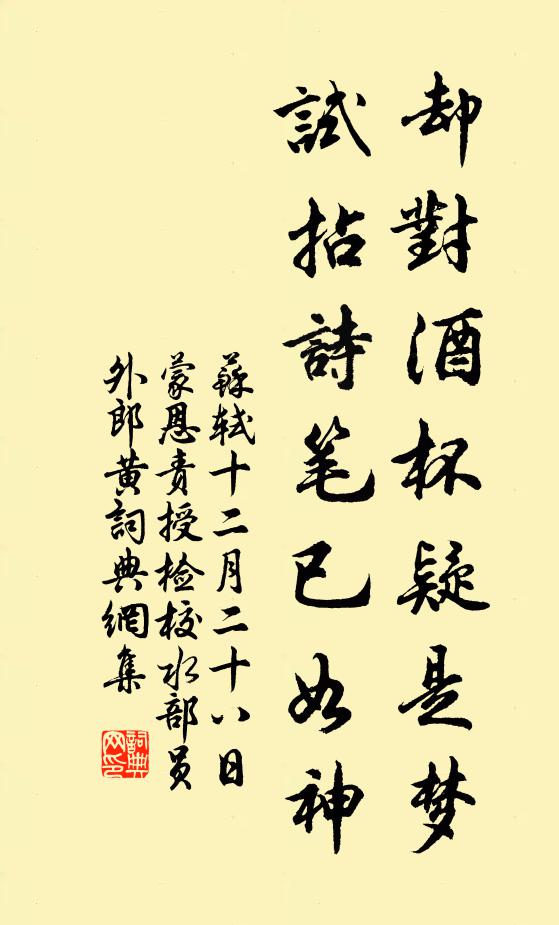 却對酒杯疑是梦
試拈詩笔已如神
蘇軾十二月二十八日
蒙恩责授检校水部员
外郎黄詞典網集
詞典
网印